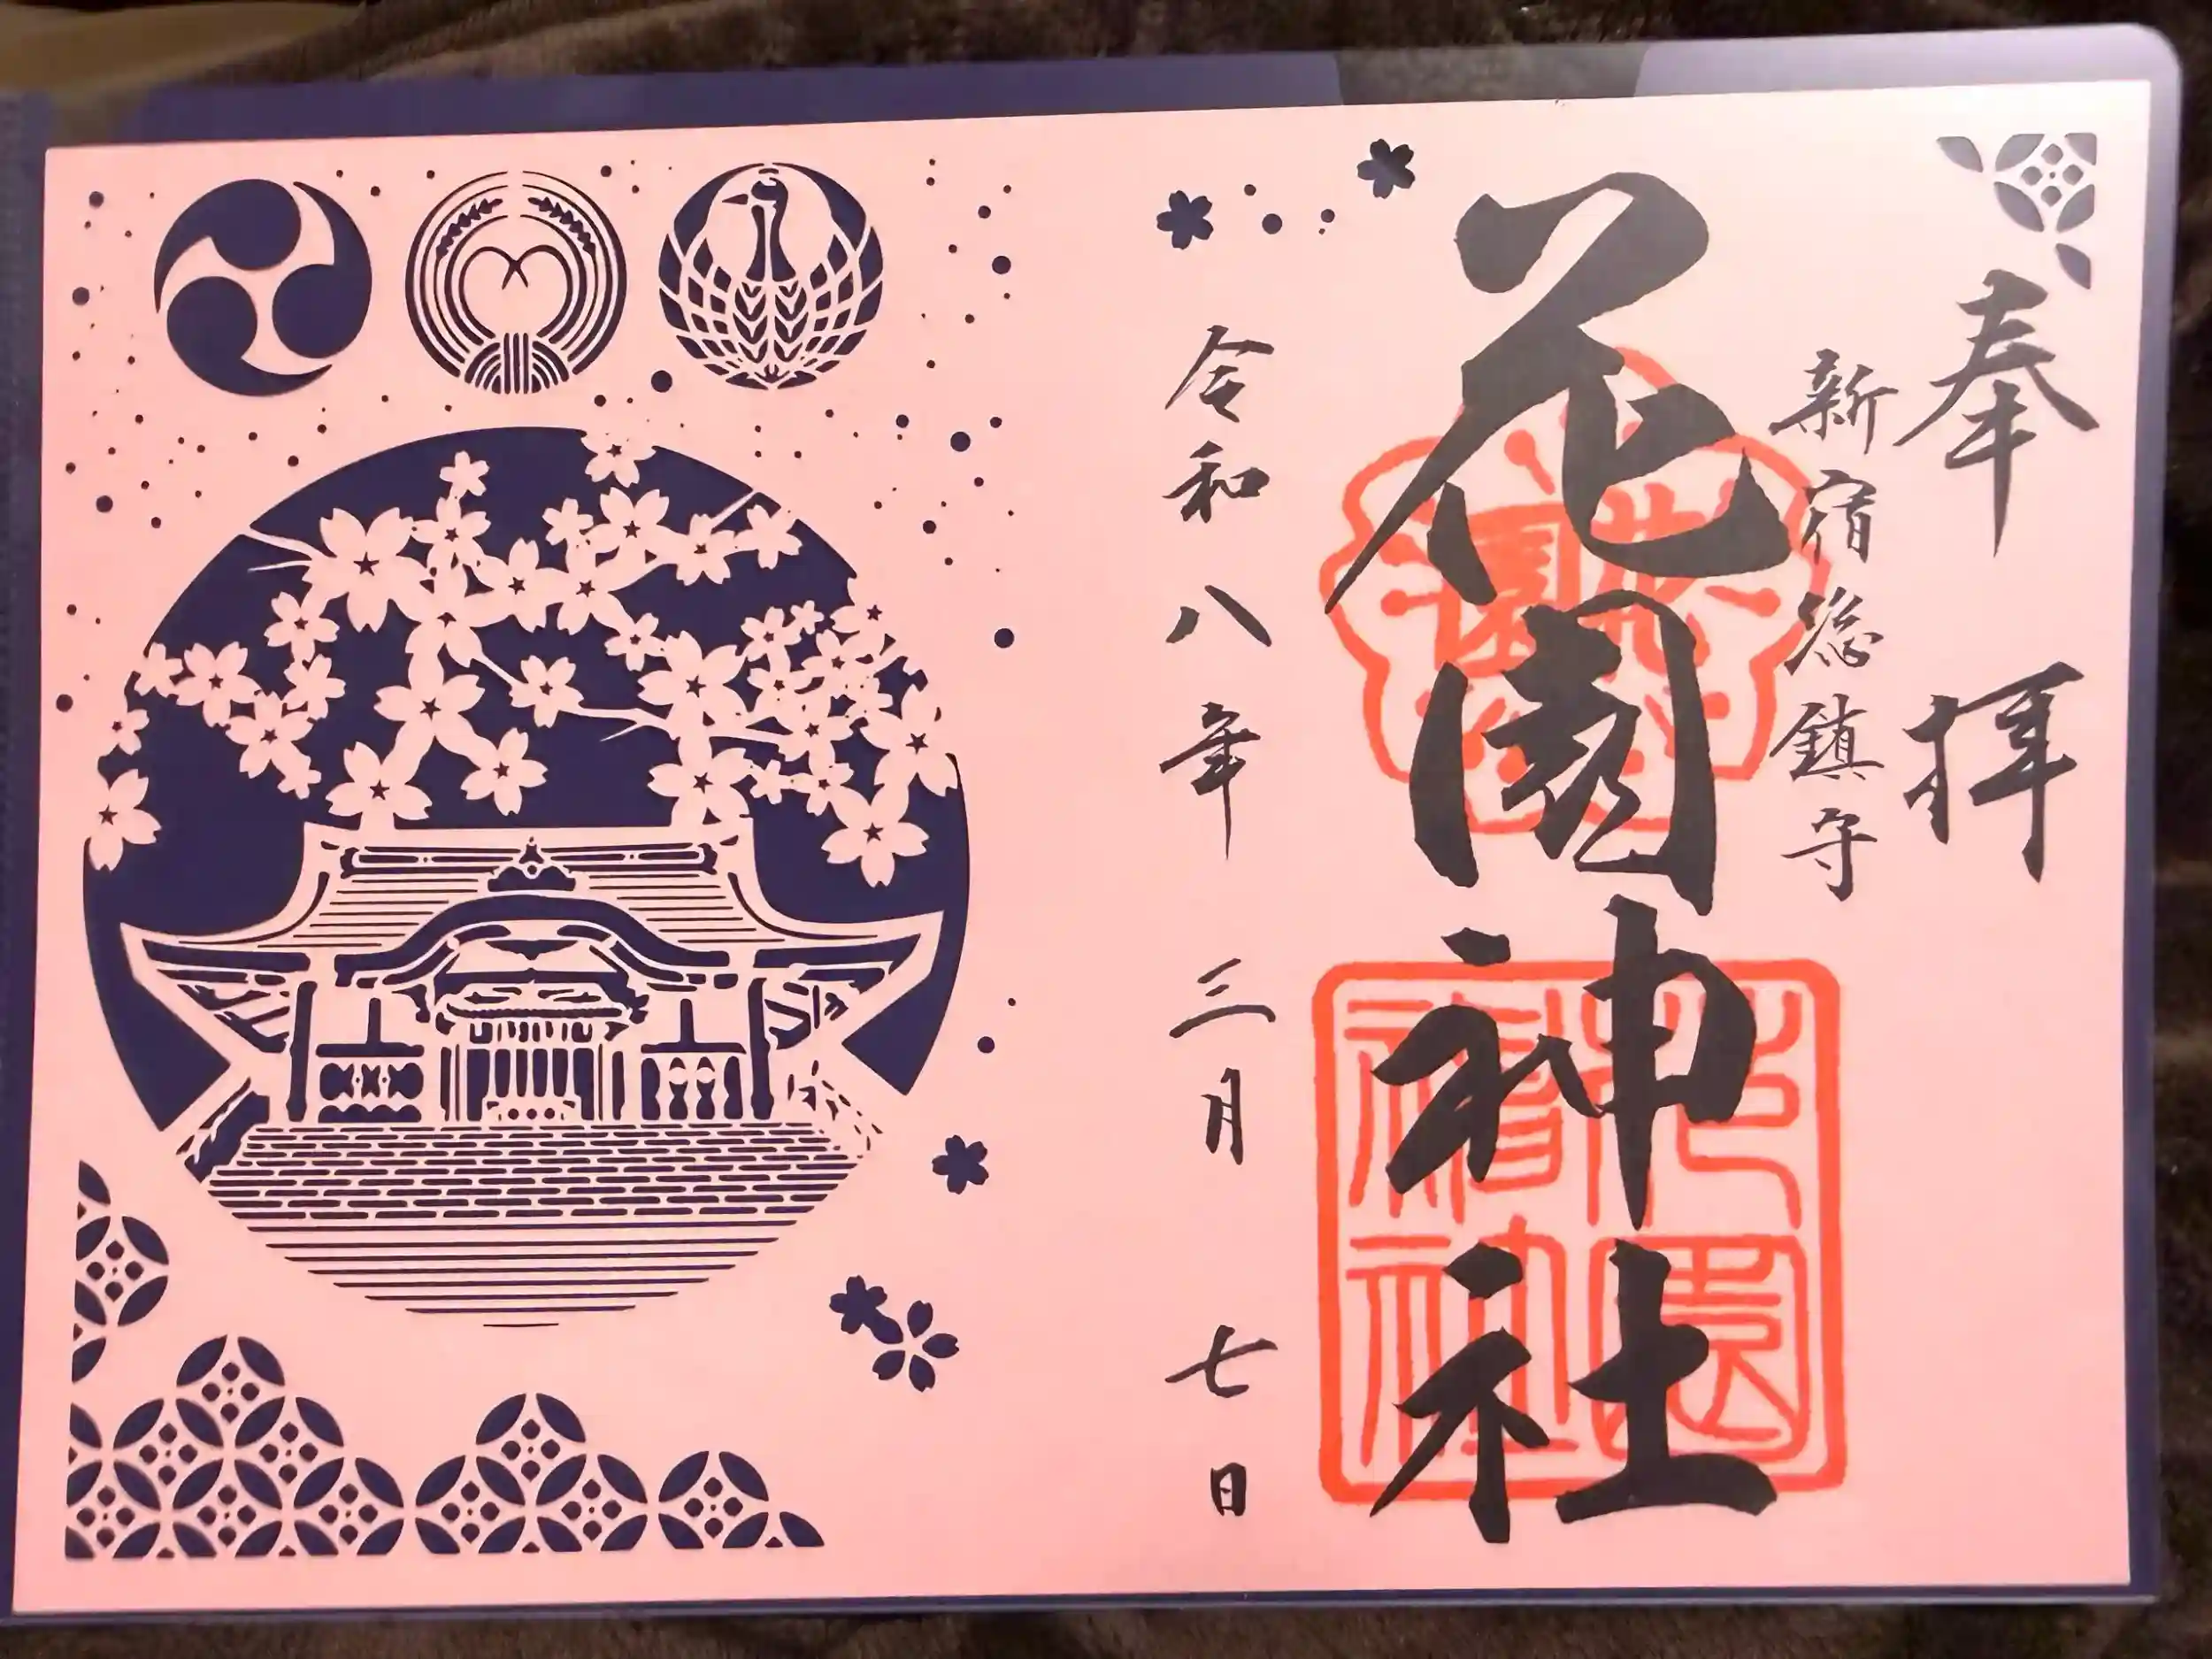 奉拝
新宿総鎮守
花園神社
花園神社
令和八年三月七日